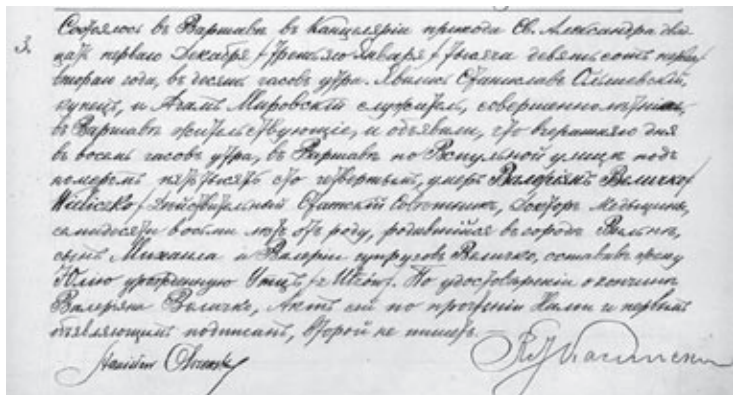 3.
Состоялось въ Варшавѣ въ Канцеляріи прихода Св. Александра двад
цать перваго Декабря /третьяго Января/ тысяча девятьсотъ перв/
втораго года, въ десять часовъ утра. Явились Станиславъ
купецъ, и Адамъ Мировскій служитель, совершеннолѣтніе,
въ Варшавѣ жительствующіе, и объявили, что вчерашняго дня
въ восемь часовъ утра, въ Варшавѣ по Вспульной улицѣ подъ
номеромъ пять тысячъ сто четвертымъ, умеръ Валеріянъ Величко/
Wieliczko/ Дѣйствительный Статскій Совѣтникъ, Докторъ медицины,
семидесяти восьми лѣтъ отъ роду, родившійся въ городѣ Вильнѣ,
сынъ Михаила и Валеріи супруговъ Величко, оставивъ жену
Юлію урожденную По удостовѣреніи о кончинѣ
Валеріяна Величко, Актъ сей по прочтеніи Нами и первымъ
объявляющимъ подписанъ, второй не пишетъ. —
Stanisław